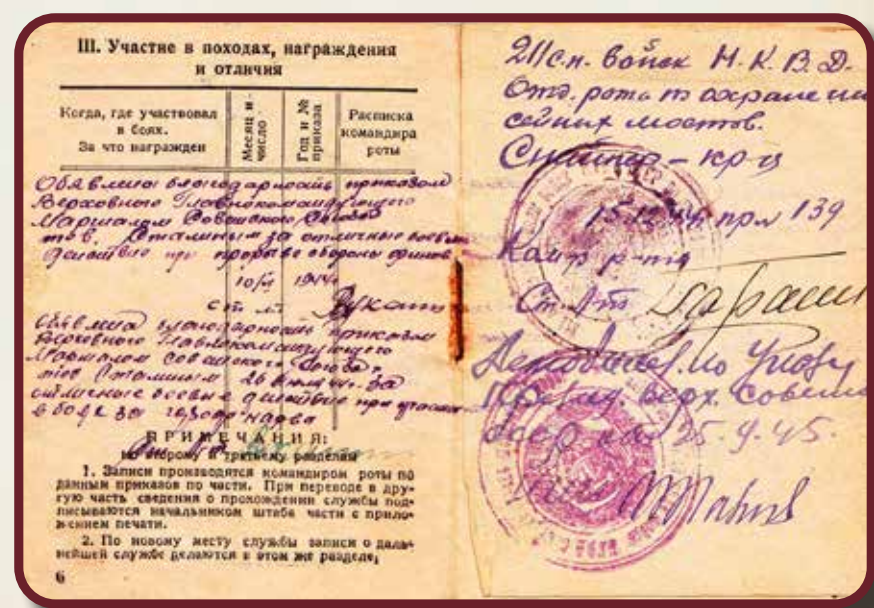 III. Участие в походах, награждения
и отличия
Когда, где участвовал
в боях.
За что награжден
Месяц и
число
Год и №
приказа
Расписка
командира
роты
Объявлена благодарность приказом
Верховного Главнокомандующего
Маршалом Советского Союза
тов. Сталиным за отличные боевые
действие при прорыве обороны финов
1944
Объявлена благодарность приказом
Верховного Главнокомандующего
Маршалом Советского Союза
тов Сталиным 26 44 г. за
отличные боевые действие при
в боях за город нарва
ПРИМЕЧАНИЯ:
ко второму и третьему разделам
1. Записи производятся командиром роты по
данным приказов по части. При переводе в дру-
гую часть сведения о прохождении службы под-
писываются начальником штаба части с прило-
жением печати.
2. По новому месту службы записи о даль-
нейшей службе делаются в этом же разделе.
6
211 с.п. войск Н.К.В.Д.
Отд. рота по охране
мостов.
Снайпер – кр-ц
15.12.44 пр № 139
Ком-р р-ты
Ст. л-т
Демобилиз. по Указу
Презид. Верх. Совета
СССР от 25.9.45.